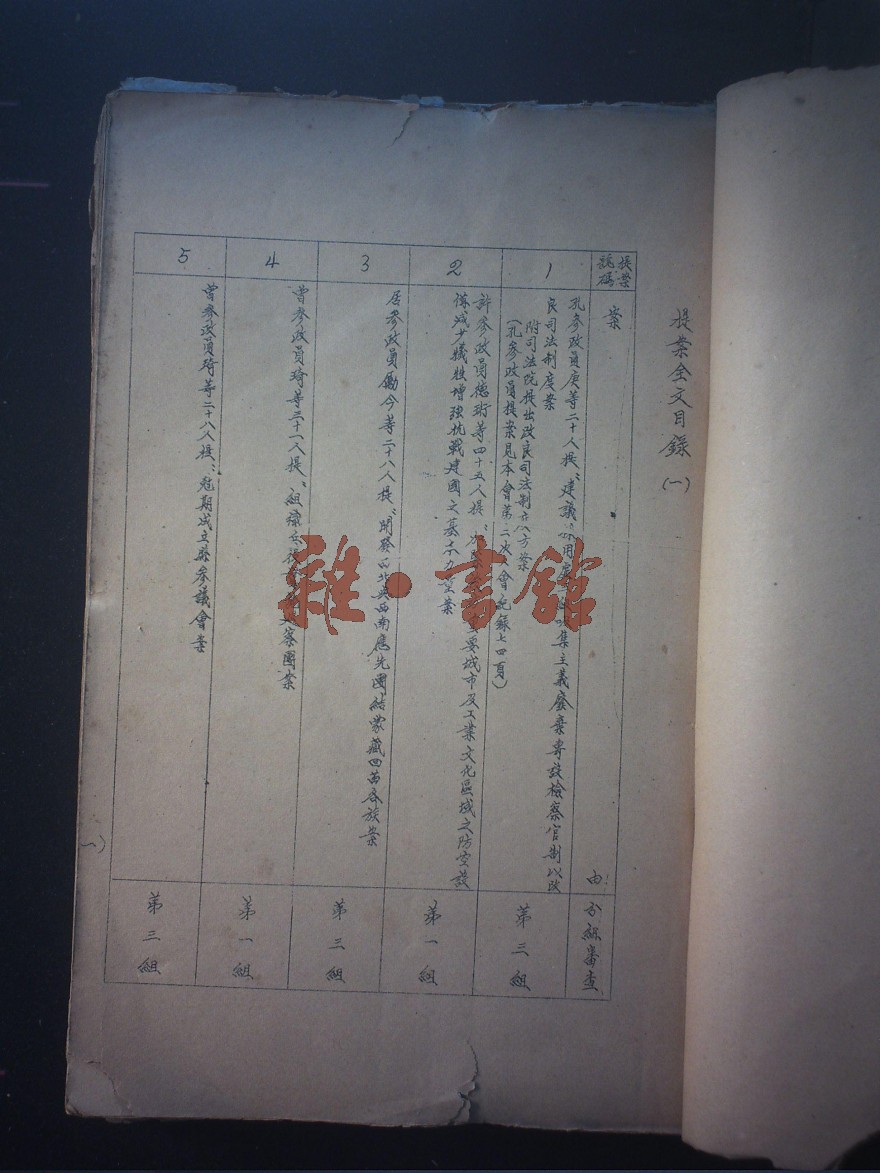 提案全文目錄(一)
提案號碼
案
由
分組審查
1
孔參政員庚等二十人提:建議 用 集主義廢棄專設檢察官制以改
良司法制度案
附司法院提出改良司法制度方案
(孔參政員提案見本會第二次大會紀錄七四頁)
第三組
2
許參政員德珩等四十五人提: 重要城市及工業文化區域之防空設
備減少犧牲增強抗戰建國之基本力量案
第一組
3
居參政員勵今等二十八人提:開發西北與西南應先團結蒙藏回苗各族案
第三組
4
曾參政員琦等三十一人提:組織兵役 察團案
第一組
5
曾參政員琦等二十八人提:尅期成立縣參議會案
第三組
(一)
雜·書館